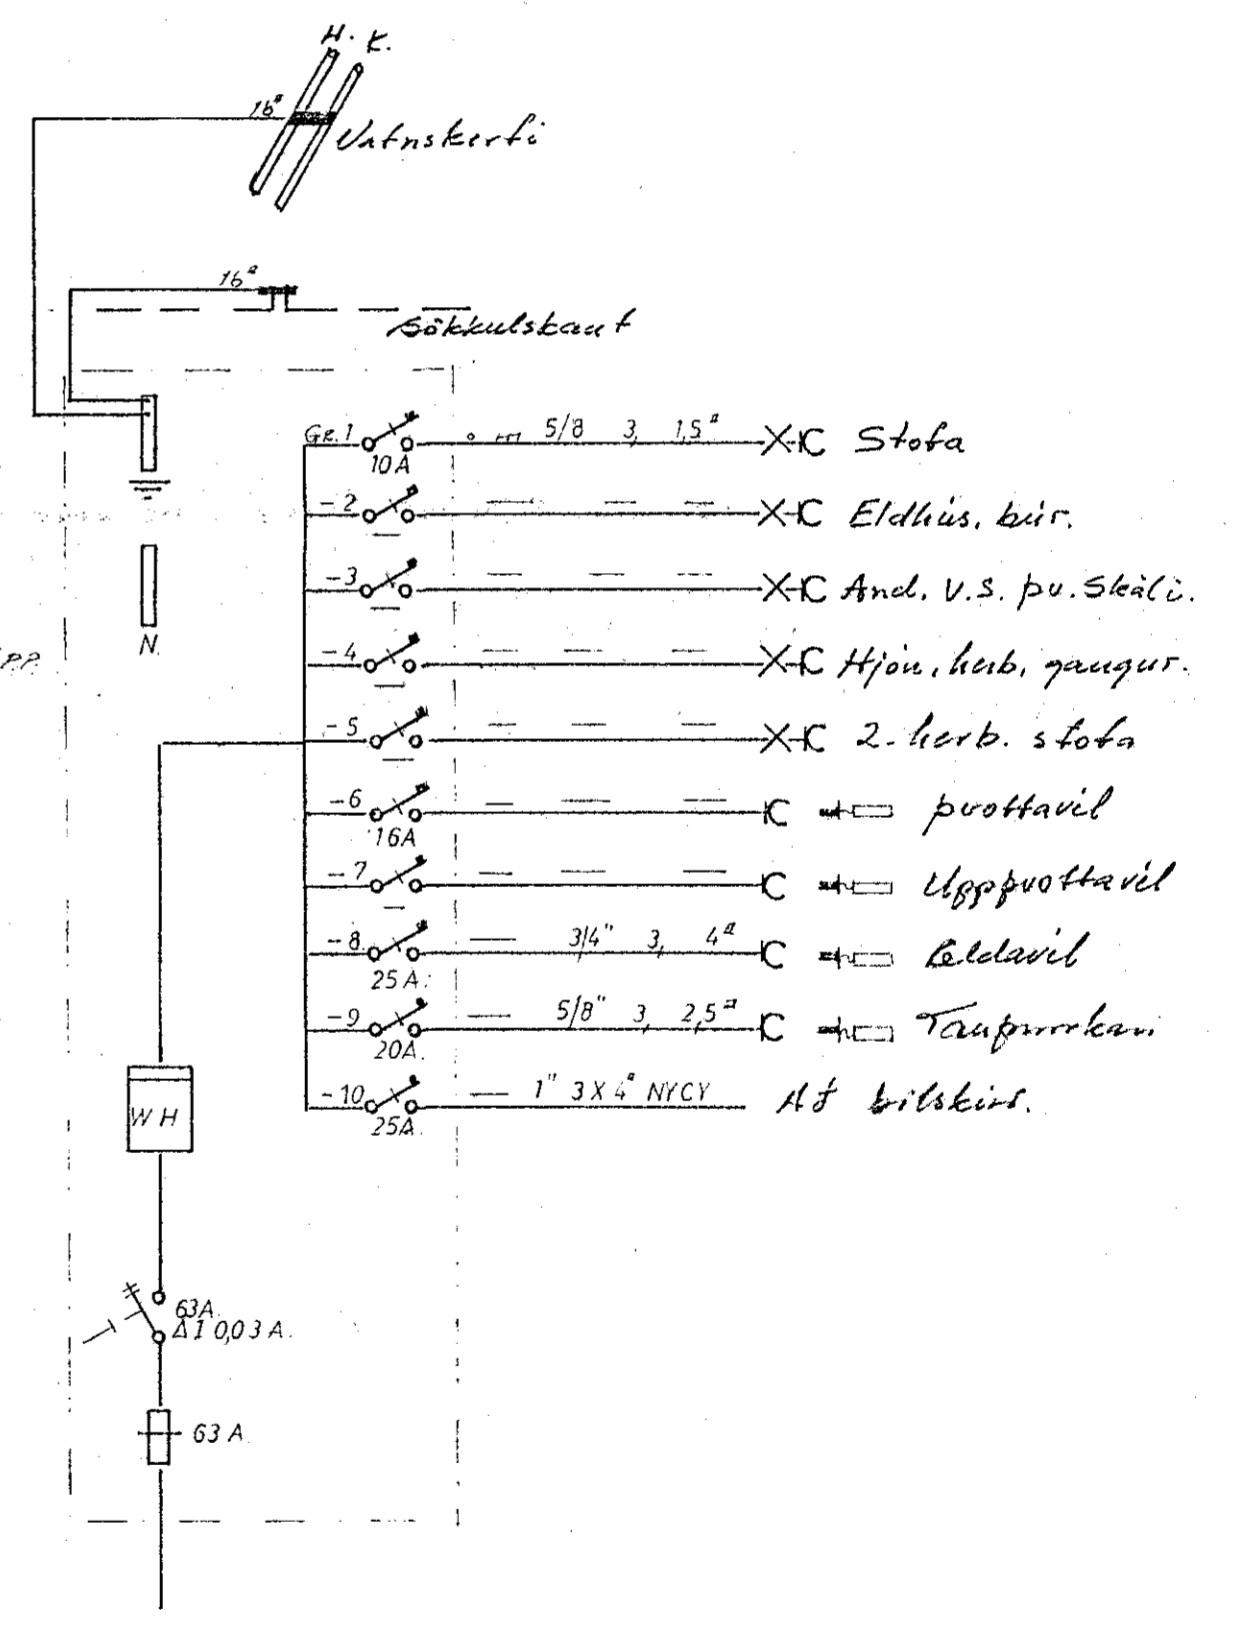 H. K.
16"
Vatnskerfi
16"
Sökkulskaut
GR.1 10A 5/8 3, 1,5" Stofa
-2 Eldhús. búr.
-3 And. V.S. þv. Skáli.
-4 Hjón. herb. gangur.
-5 2. herb. stofa
-6 16A þvottavél
-7 Uppþvottavél
-8 25A. 3/4" 3, 4" Eldavél
-9 20A. 5/8" 3, 2,5" Tauþurrkari
-10 25A. 1" 3X4" NYCY Að bílskúr.
N.
P.P.
WH
63A.
ΔI 0,03A.
63A.